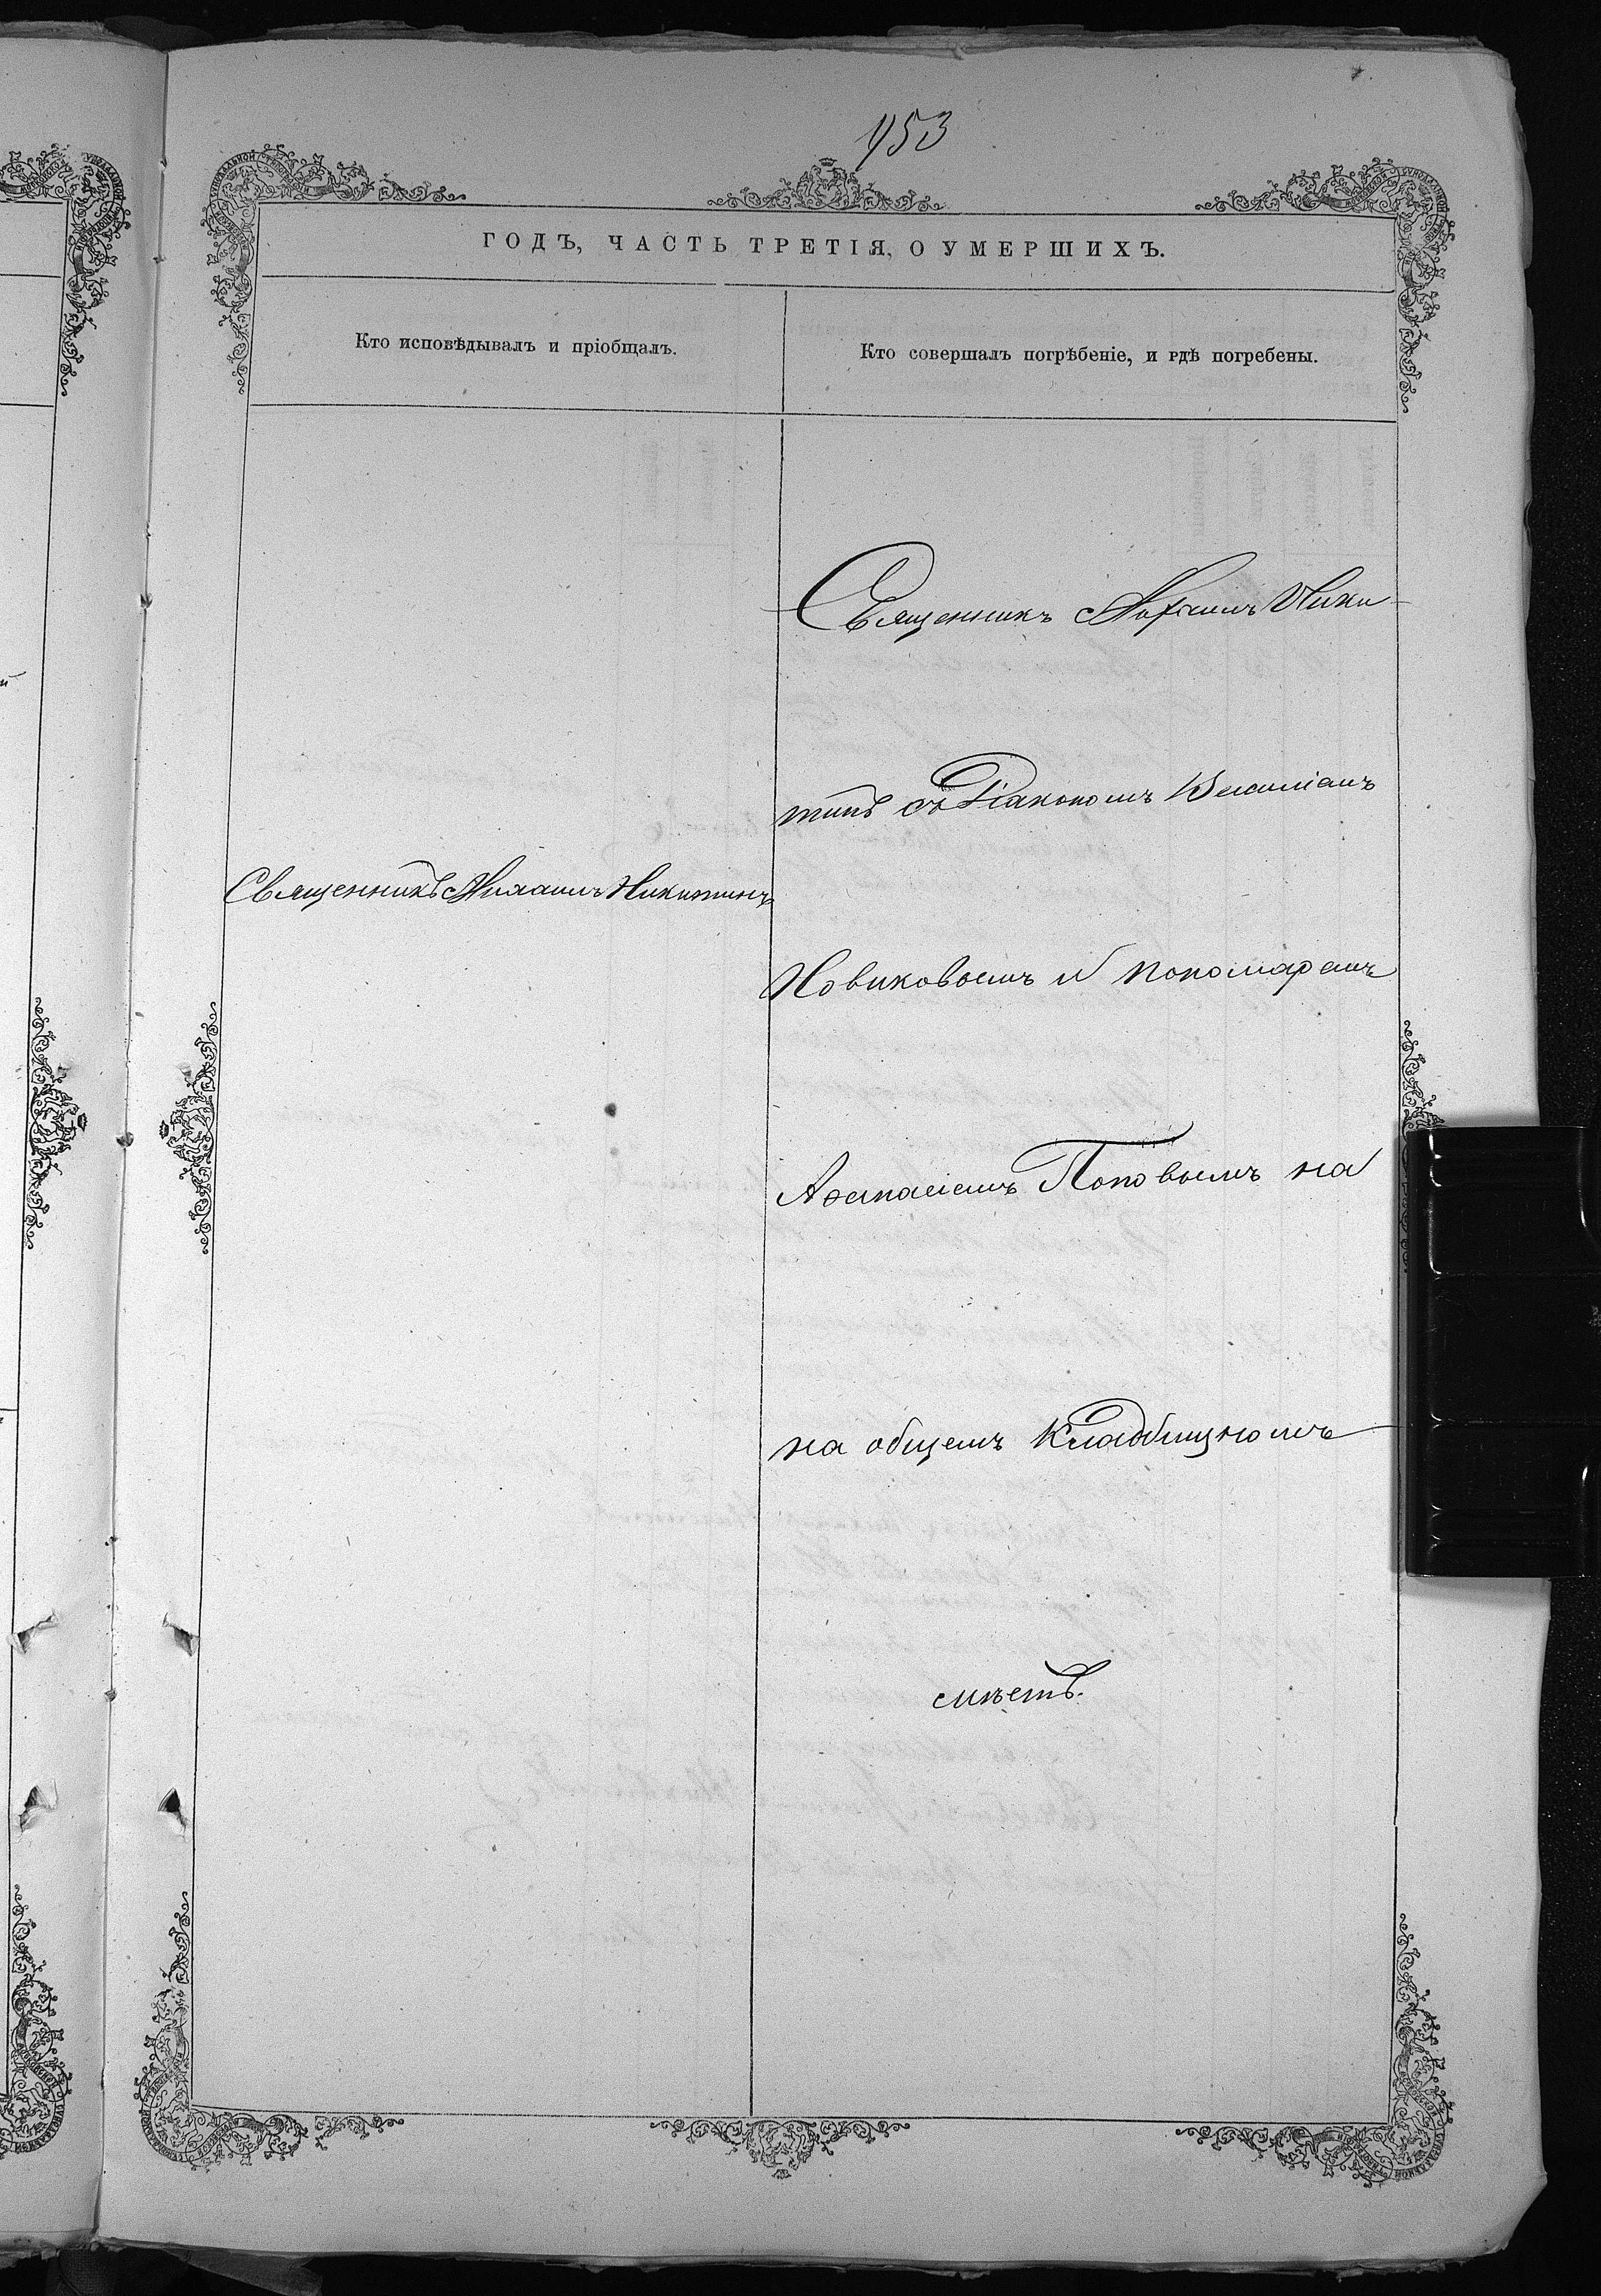 453
ГОДЪ, ЧАСТЬ ТРЕТІЯ, О УМЕРШИХЪ.
Кто исповѣдывалъ и пріобщалъ.
Кто совершалъ погрѣбеніе, и гдѣ погребены.
Священникъ Михаилъ Никитинъ
Священникъ Михаилъ Ники-
тинъ съ Діакономъ
Новиковымъ и пономаремъ
Аѳанасіемъ Поповымъ на
на общемъ Кладбищномъ
мѣстѣ.